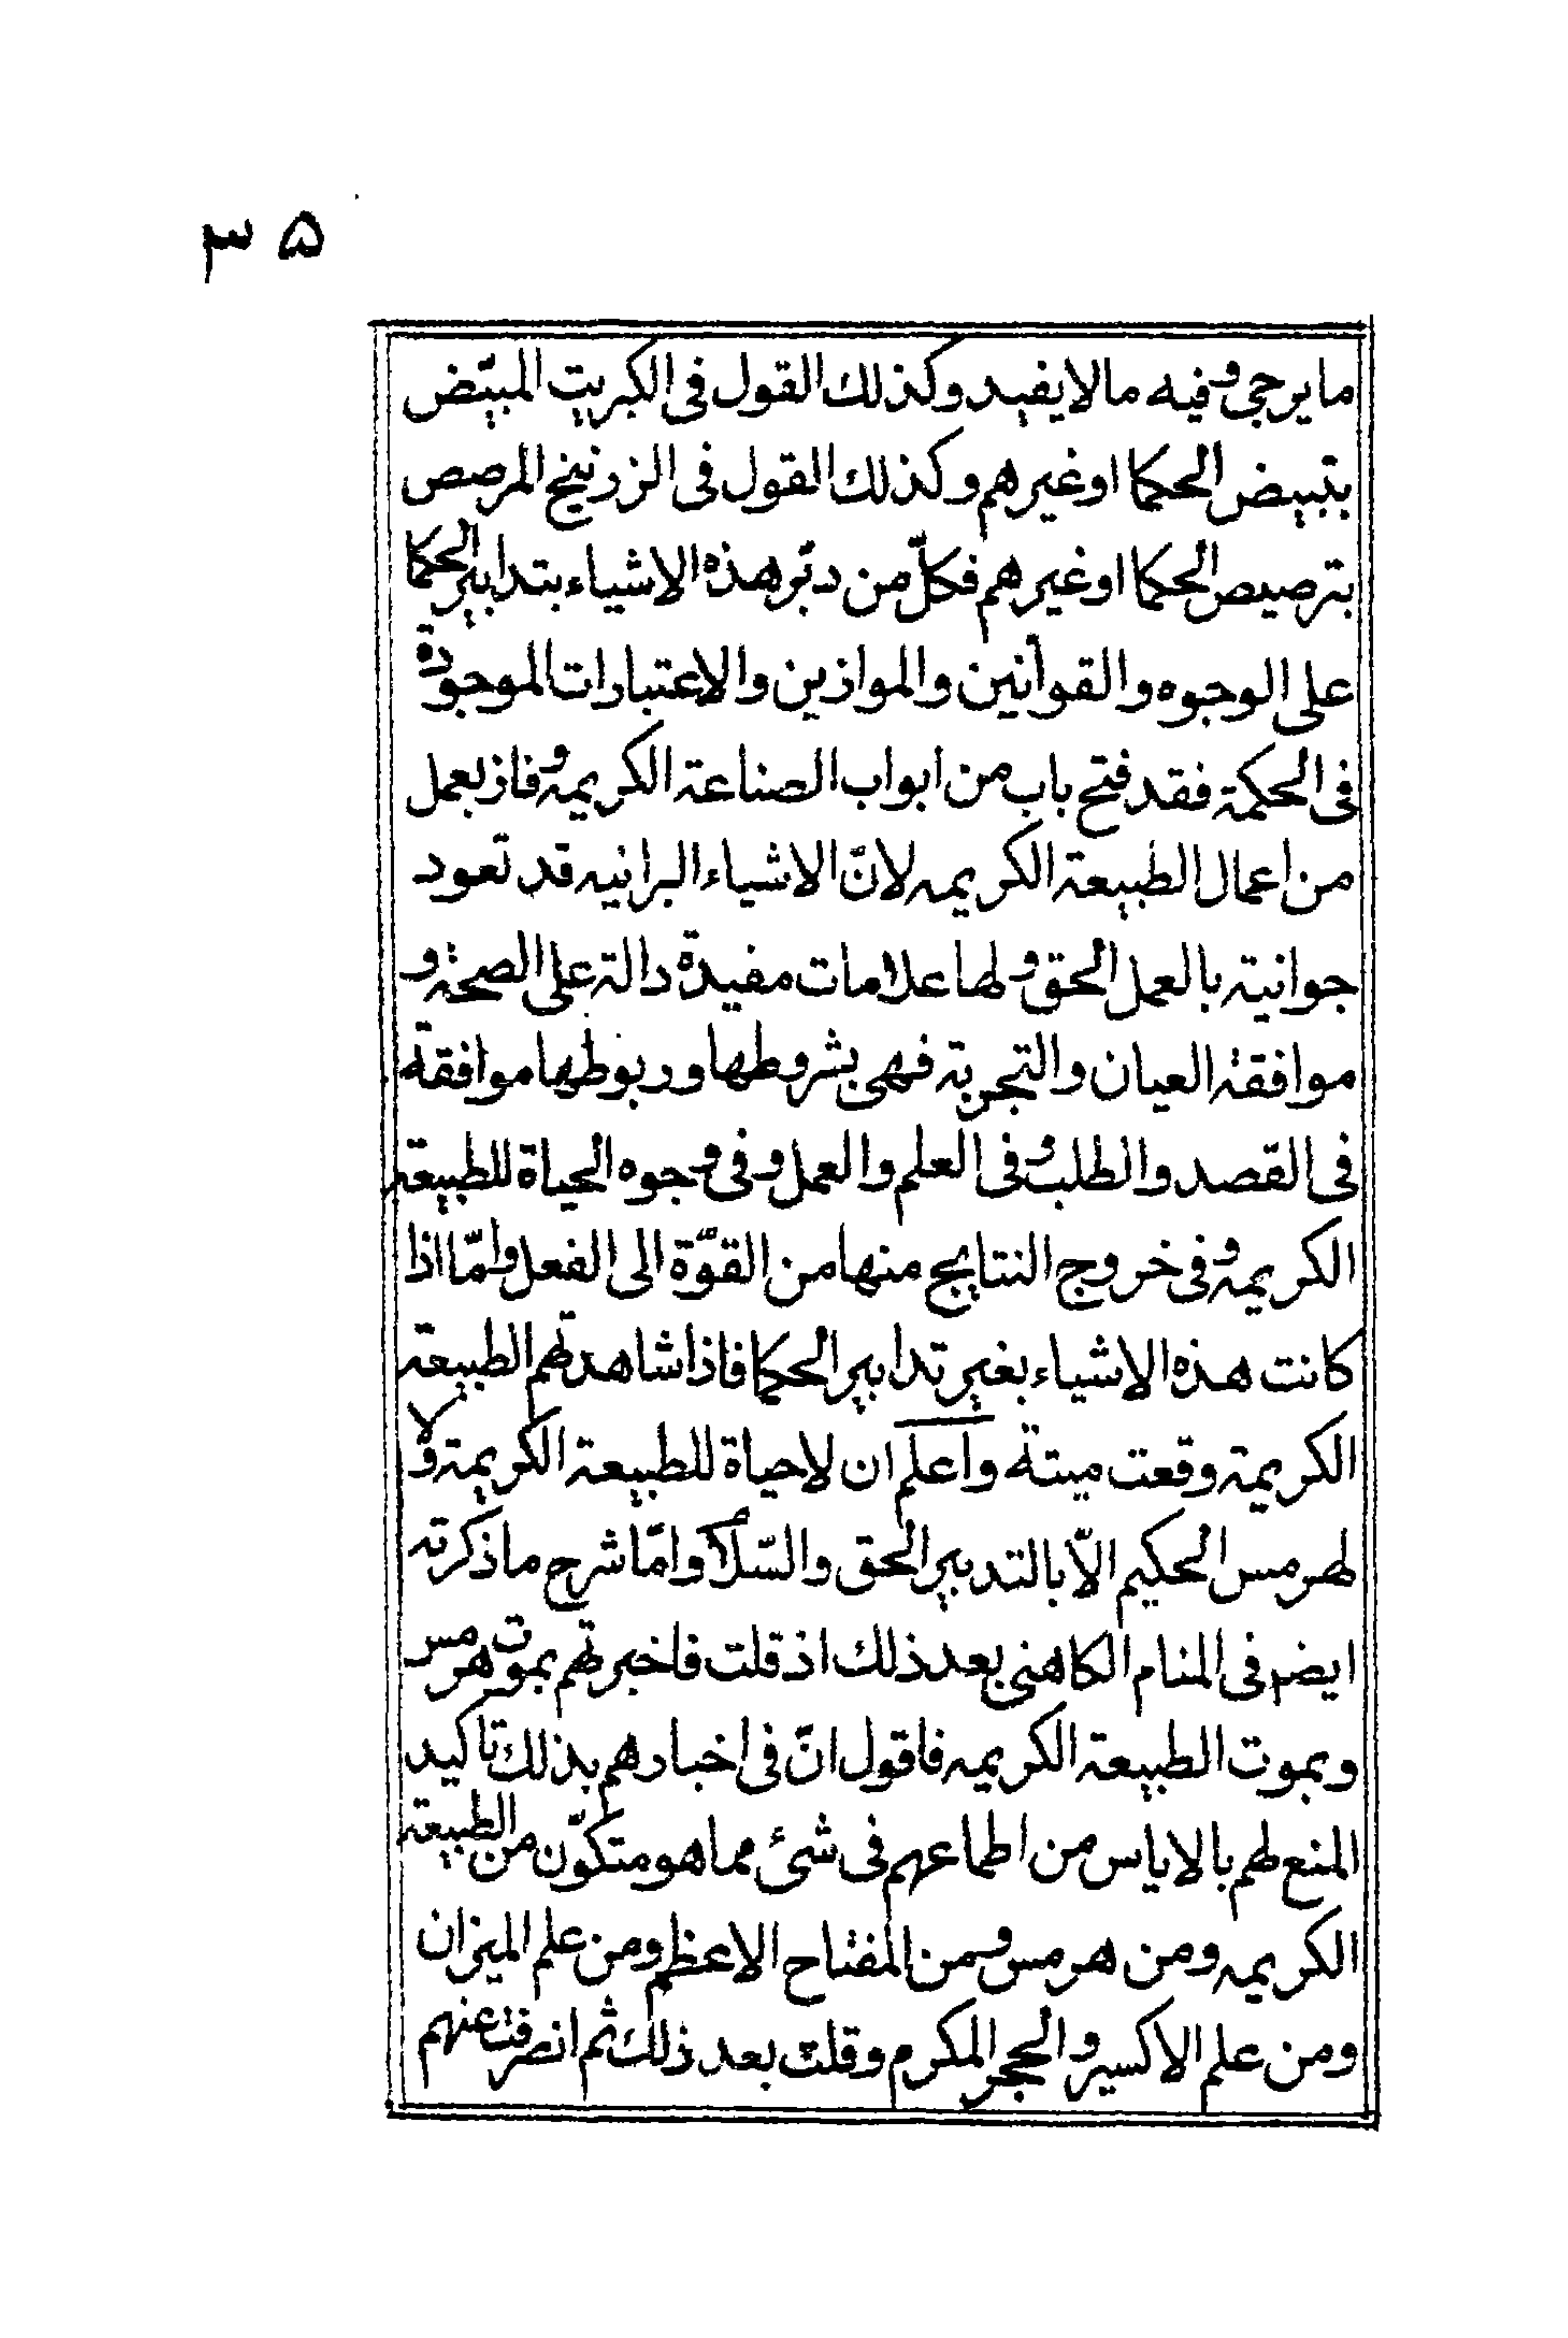 ۳۵
ما يرجى وفيه مالا يفيد وكذلك القول فى الكبريت المبيّض
بتبييض الحكما اوغيرهم وكذلك القول فى الزرنيخ المرصص
بترصيص الحكما اوغيرهم فكلّ من دبّر هذه الاشياء بتدابير الحكما
على الوجوه والقوانين والموازين والاعتبارات الموجودة
فى الحكمة فقد فتح باب من ابواب الصناعة الكريمة وفاز بعمل
من اعمال الطبيعة الكريمه لانّ الاشياء البرانيه قد تعود
جوانية بالعمل الحق ولها علامات مفيدة دالة على الصحة و
موافقة العيان والتجربة فهى بشروطها وربوطها موافقة
فى القصد والطلب وفى العلم والعمل وفى وجوه الحياة للطبيعة
الكريمة وفى خروج النتايج منها من القوّة الى الفعل وامّا اذا
كانت هذه الاشياء بغير تدابير الحكما فاذا شاهدتهم الطبيعة
الكريمة وقعت ميتة واعلم ان لاحياة للطبيعة الكريمة ولا
لهرمس الحكيم الاّ بالتدبير الحق والسّلام وامّا شرح ماذكرته
ايضا فى المنام الكاهنى بعد ذلك اذ قلت فاخبرتهم بموت هرمس
وبموت الطبيعة الكريمه فاقول انّ فى اخبارهم بذلك تاكيد
المنع لهم بالاياس من اطماعهم فى شئ مما هو متكوّن من الطبيعة
الكريمه ومن هرمس ومن المفتاح الاعظم ومن علم الميزان
ومن علم الاكسير والحجر المكرم وقلت بعد ذلك ثم انصرفت عنهم